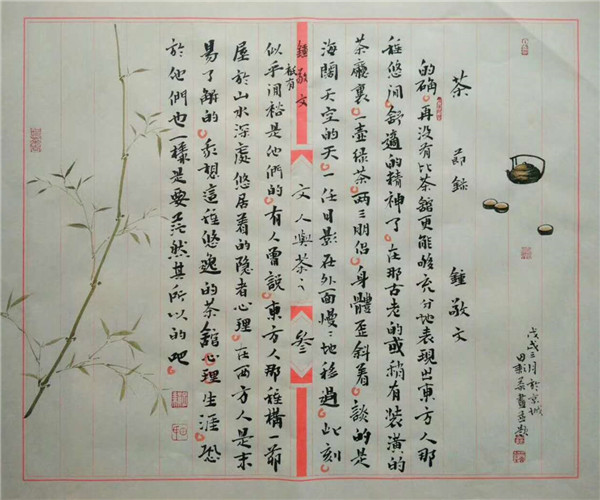 戊戌三月於京城
茶 節錄 鍾敬文
的确。再没有比茶館更能够充分地表現出東方人那
種悠闲。舒適的精神了。在那古老的或稍有裝潢的
茶廳裏。一壺绿茶。两三朋侣。身體歪斜着。談的是
海闊天空的天。一任日影在外面慢〻地移過。此刻
鍾敬文 文人與茶之 叁
似乎闲裕是他們的。有人曾説。東方人那種構一茆
屋於山水深處悠居着的隐者心理。在西方人是未
易了解的。我想這種悠逸的茶館心理生涯。恐
於他們也一樣是要茫然其所以的吧。